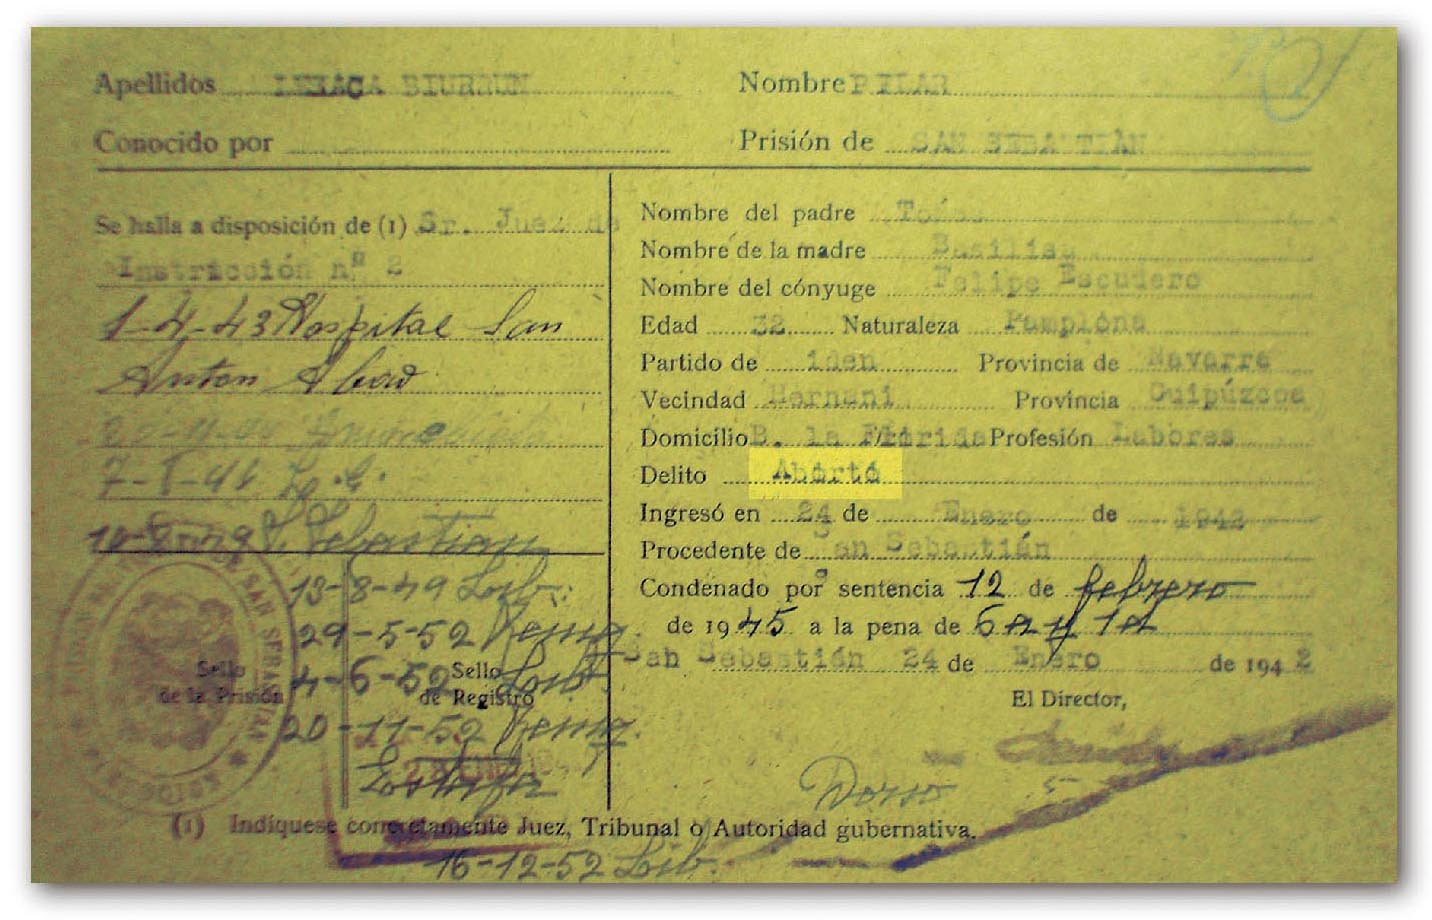 Apellidos LEZACA BIURRUN Nombre PILAR
Conocido por Prisión de SAN SEBASTIÁN
Se halla a disposición de (1) Sr. Juez de
Instrucción nº 2
1-4-43 Hospital San
Anton Abad
7-1-46
10-8-49 S. Sebastian
13-8-49 Lib.
29-5-52
4-6-52 Lib.
20-11-52
Sello
de la Prisión
Sello
de Registro
Nombre del padre
Nombre de la madre Basilisa
Nombre del cónyuge Felipe Escudero
Edad 32 Naturaleza Pamplona
Partido de iden Provincia de Navarra
Vecindad Hernani Provincia Guipúzcoa
Domicilio B. la Florida Profesión Labores
Delito Aborto
Ingresó en 24 de Enero de 1942
Procedente de San Sebastián
Condenado por sentencia 12 de febrero
de 1945 a la pena de 6 a y 1 d
San Sebastián 24 de Enero de 1942
El Director,
Dorso
(1) Indíquese concretamente Juez, Tribunal o Autoridad gubernativa.
16-12-52 Lib.